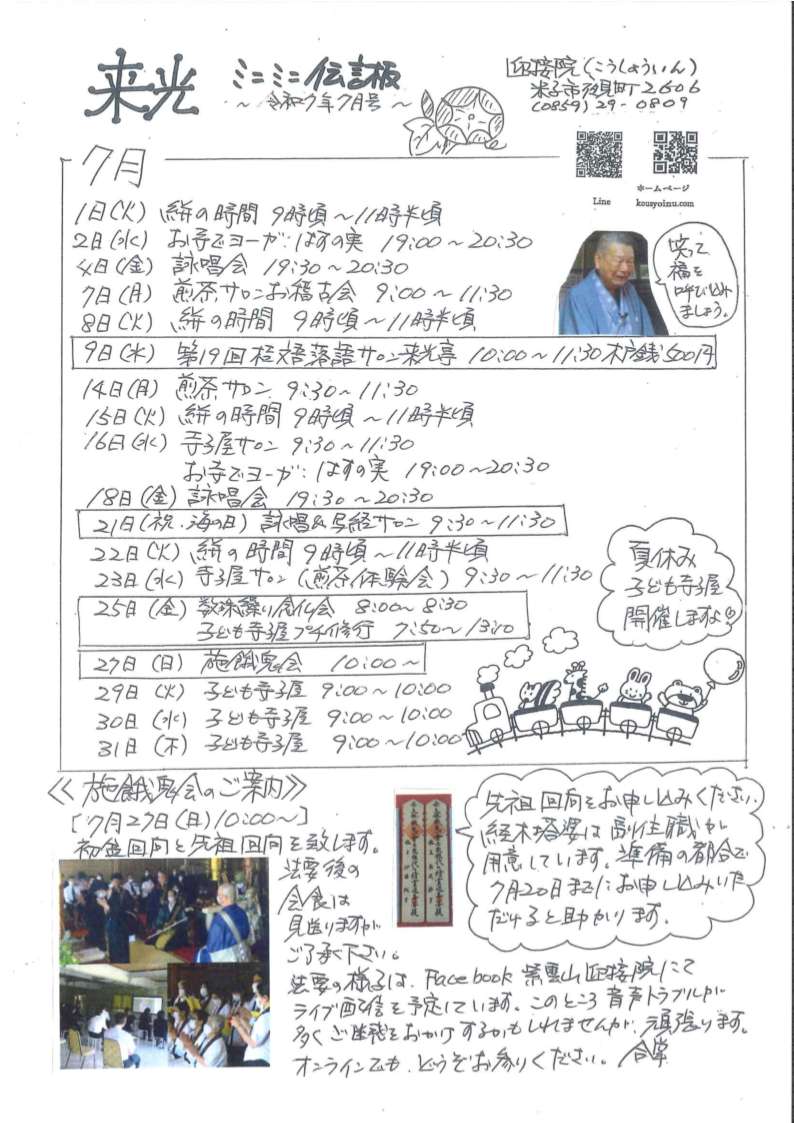 来光 ミニミニ伝言板
～令和7年7月号～
迎接院(こうしょういん)
米子市夜見町2606
(0859)29-0809
Line
ホームページ
kousyoinu.com
7月
1日(火) 絣の時間 9時頃～11時半頃
2日(水) お寺でヨーガ:はすの実 19:00～20:30
4日(金) 詠唱会 19:30～20:30
7日(月) 煎茶サロンお稽古会 9:00～11:30
8日(火) 絣の時間 9時頃～11時半頃
9日(水) 第19回 落語サロン来光亭 10:00～11:30 木戸銭500円
14日(月) 煎茶サロン 9:30～11:30
15日(火) 絣の時間 9時頃～11時半頃
16日(水) 寺子屋サロン 9:30～11:30
お寺でヨーガ:はすの実 19:00～20:30
18日(金) 詠唱会 19:30～20:30
21日(祝・海の日) 詠唱&写経サロン 9:30～11:30
22日(火) 絣の時間 9時頃～11時半頃
23日(水) 寺子屋サロン(煎茶体験会) 9:30～11:30
25日(金) 数珠繰り念仏会 8:00～8:30
子ども寺子屋プチ修行 7:50～13:10
27日(日) 施餓鬼会 10:00～
29日(火) 子ども寺子屋 9:00～10:00
30日(水) 子ども寺子屋 9:00～10:00
31日(木) 子ども寺子屋 9:00～10:00
笑って
福を
呼び込み
ましょう。
夏休み
子ども寺子屋
開催しますよ
≪施餓鬼会のご案内≫
[7月27日(日)10:00～]
初盆回向と先祖回向を致します。
法要後の
会食は
見送りますが
ご了承下さい。
法要の様子は、Facebook 紫雲山迎接院にて
ライブ配信を予定しています。このところ音声トラブルが
多くご迷惑をおかけするかもしれませんが、頑張ります。
オンラインでも、どうぞお参りください。 合掌
先祖回向をお申し込みください。
経木塔婆は副住職が
用意しています。準備の都合で
7月20日までにお申し込みいた
だけると助かります。